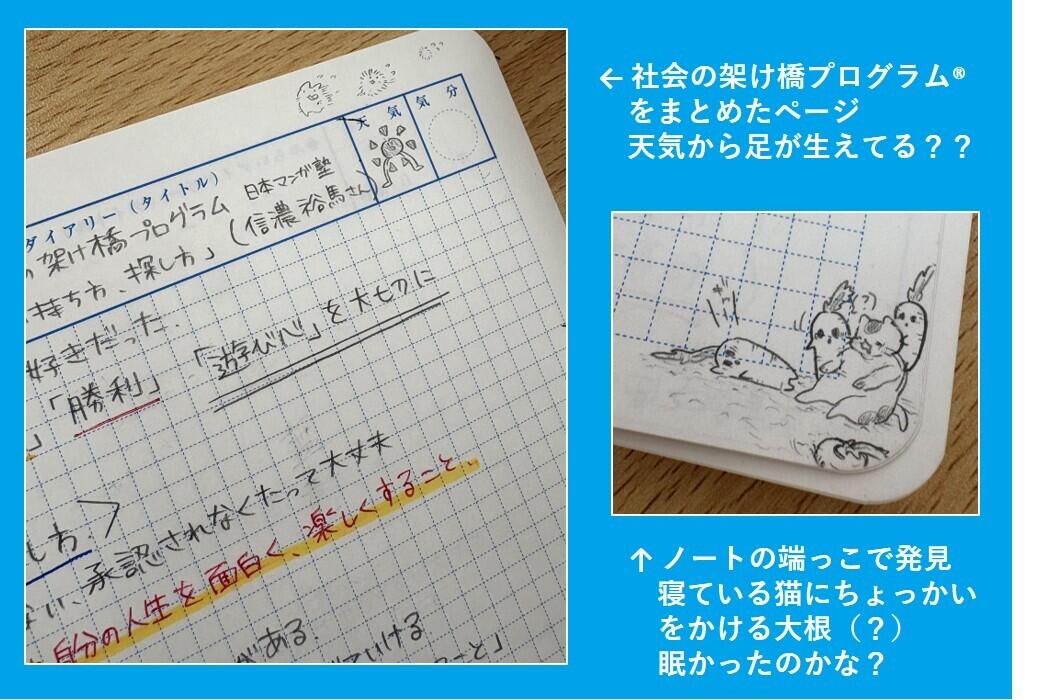 ← 社会の架け橋プログラム®
をまとめたページ
天気から足が生えてる？？
天気
気分
ダイアリー（タイトル）
架け橋プログラム 日本マンガ塾
持ち方、探し方」（信濃 裕馬さん）
好きだった.
「勝利」
「遊び心」を大切に
し方〉
ない、承認されなくたって大丈夫
自分の人生を面白く、楽しくすること、
がある.
ていける
こと」
↑ ノートの端っこで発見
寝ている猫にちょっかい
をかける大根（？）
眠かったのかな？